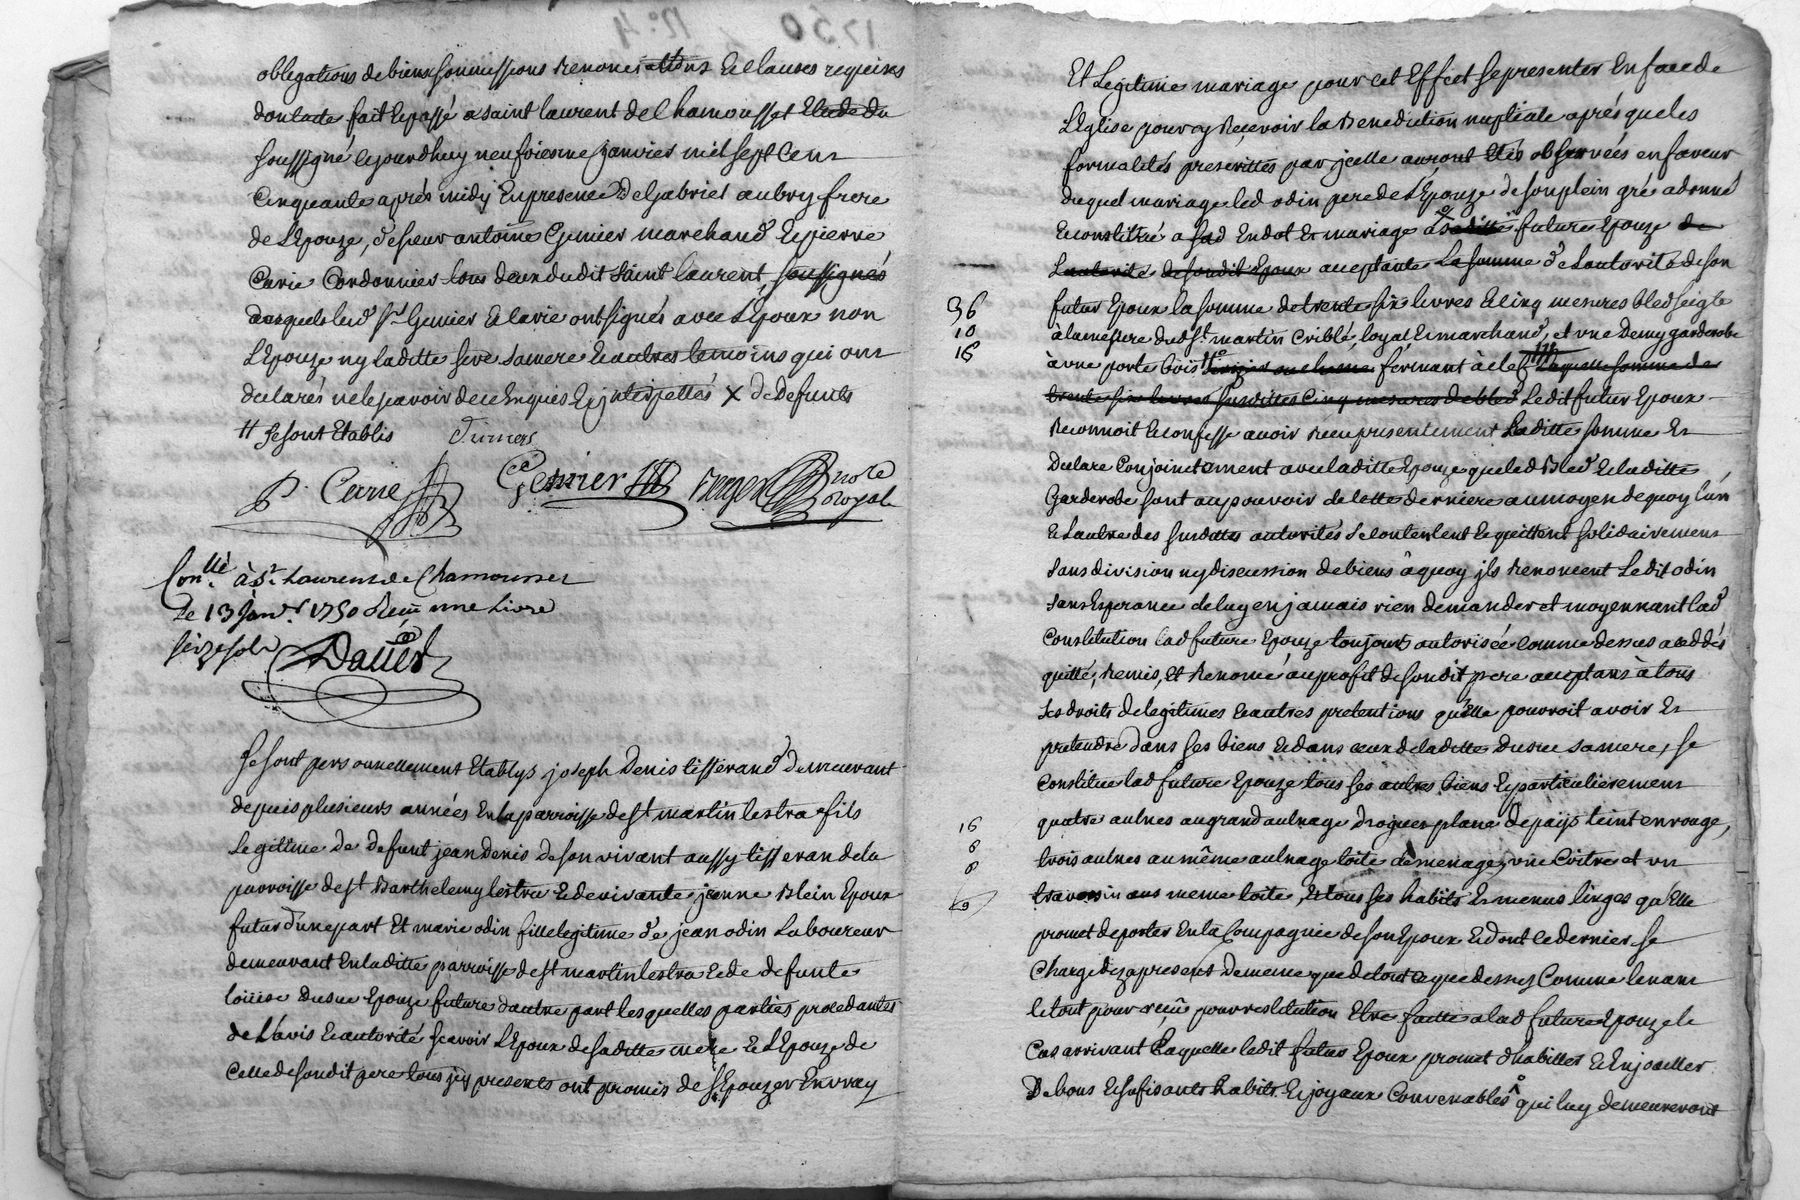 1750 N.° 4
obligations de biens soumissions Renonciations Et Clauses requises
dont acte fait Et passé a saint laurent de Chamousset Etude du
soussigné Cejourdhuy neufviesme janvier mil sept Cens
Cinquante aprés midy En presence De Gabriel aubry frere
de L'Epouze, de sieur antoine Genier marchand Et pierre
Carie Cordonnier tous deux dudit saint laurent, soussignés
desquels led sr Genier Et Carie ont signés avec L'Epoux non
L'Epouze ny laditte sa mere Et autres temoins qui ont
declarés ne le sçavoir de ce Enquis Et jnterpellés X de Defunts
# se sont Etablis
P. Carie Genier no.re Royal
Con.llé à St. Laurens de Chamousset
Le 13 Janv.r 1750 Reçu une Livre
seize sols
Se sont personnellement Etablys joseph Denis tisserand Demeurant
depuis plusieurs années En la parroisse de St martin lestra fils
Legitime de Defunt jean Denis de son vivant aussy tisseran de la
parroisse de St Barthelemy lestra Et de vivante jeanne Blein Epoux
futur d'une part Et marie odin fille legitime de jean odin Laboureur
demeurant En laditte parroisse de St martin lestra Et de defunte
loüise Epouze future d'autre part lesquelles parties procedantes
de L'avis Et autorité sçavoir L'Epoux de saditte mere Et L'Epouze de
Celle de son dit pere tous jcy presents ont promis de s'Epouzer En vray
Et Legitime mariage pour cet Effect se presenter En face de
L'Eglise pour y Recevoir la Benediction nuptiale aprés que les
formalités prescrittes par jcelle auront Etés observées en faveur
duquel mariage led odin pere de L'Epouze de son plein gré a donné
Et constitué a lad En dot Et mariage a saditte future Epouze de
L'autorité de son dit Epoux acceptante La somme de L'autorité de son
36 futur Epoux la somme de trente six livres Et cinq mesures bled seigle
10 à la mesure dud St. martin Criblé, loyal, Et marchand, et une Demy garderobe
16 à une porte bois fermant à clef Laquelle somme de
trente six livres susdittes Cinq mesures de bled Ledit futur Epoux
Reconnoit Et confesse avoir Reçu presentement Laditte somme Et
Declare Conjoinctement avec laditte Epouze que led Bled Et laditte
Garderobe sont au pouvoir de cette derniere au moyen de quoy l'un
Et L'autre des susdittes autorités se contentent Et quittent solidairement
sans division ny discussion de biens à quoy jls Renoncent Le dit odin
sans Esperance de luy en jamais rien demander et moyennant lad
Constitution lad future Epouze toujours autorisée comme dessus a ced dés
quitté, Remis, Et Renoncé au profit de son dit pere acceptans à tous
ses droits de legitimes Et autres pretentions qu'Elle pourroit avoir Et
pretendre dans ses biens Et dans ceux de laditte sa mere, se
Constitue lad future Epouze tous ses autres biens Et particulierement
16 quatre aulnes au grand aulnage droguer plane de païs teint en rouge,
8 trois aulnes au même aulnage toile de menage, une Coitre et un
8 traversin aus meme toile, Et tous ses habits Et menus linges qu'Elle
promet de porter En la Compagnie de son Epoux Et dont ce dernier se
Charge dez apresent De meme que de tout ce que dessus Comme tenant
le tout pour reçû pour restitution Etre faitte a lad future Epouze le
Cas arrivant Laquelle ledit futur Epoux promet d'habiller Et Enjoailler
De bons Et sufisants habits Et joyaux Convenables qui luy demeureront